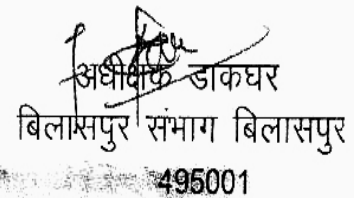 अधीक्षक डाकघर
बिलासपुर संभाग बिलासपुर
495001